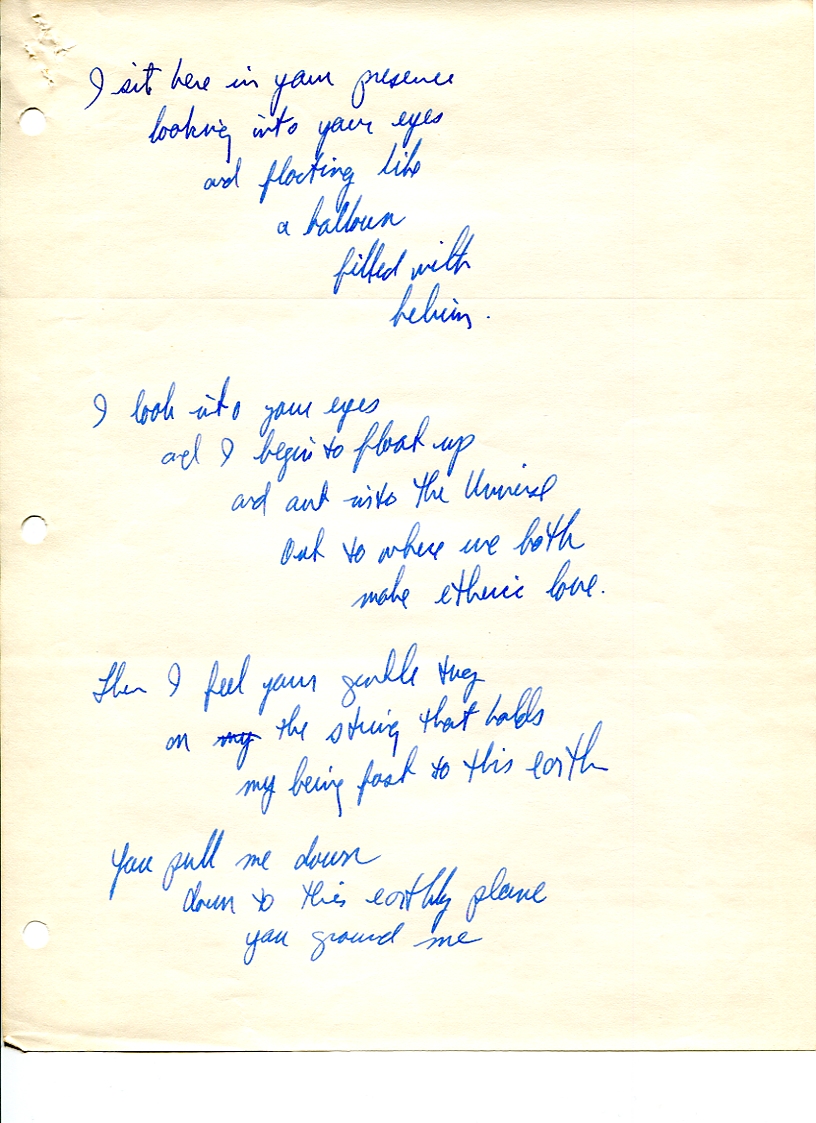 I sit here in your presence
looking into your eyes
and floating like
a balloon
filled with
helium.
I look into your eyes
and I begin to float up
and out into the Universe
Out to where we both
make etheric love.
Then I feel your gentle tug
on my the string that holds
my being fast to this earth
You pull me down
down to this earthly plane
you ground me